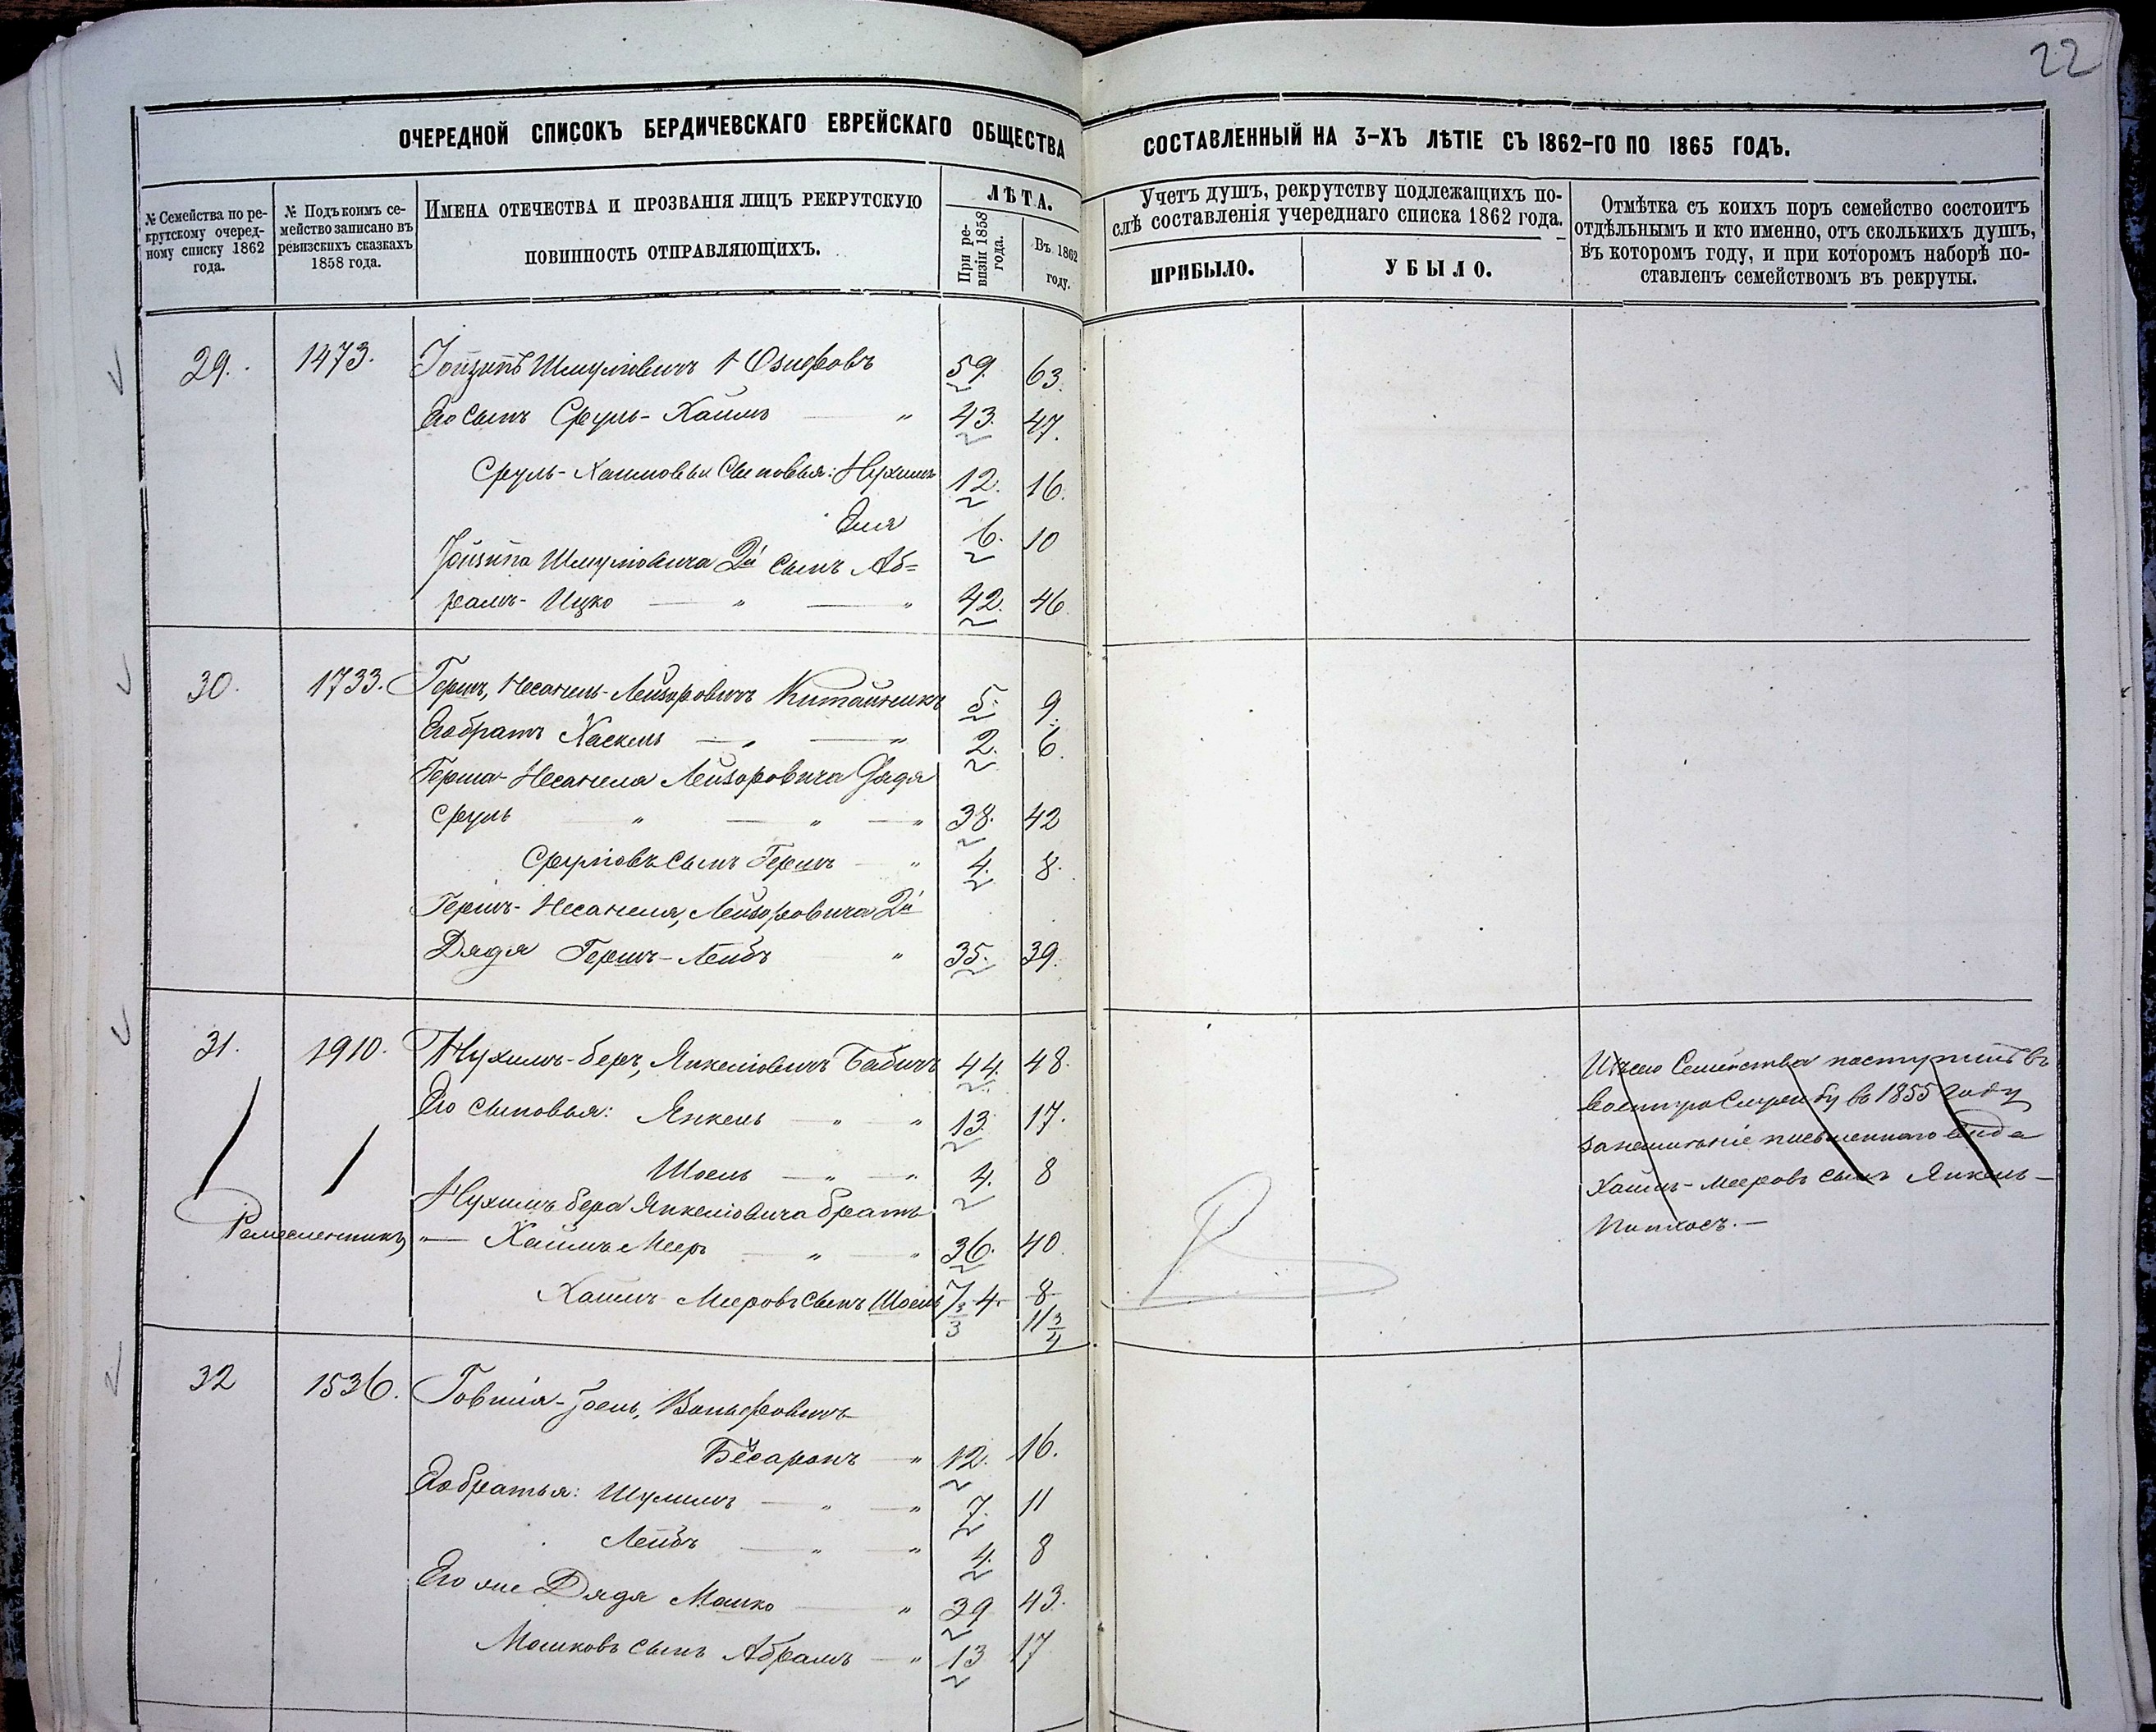 22
ОЧЕРЕДНОЙ СПИСОКЪ БЕРДИЧЕВСКАГО ЕВРЕЙСКАГО ОБЩЕСТВА СОСТАВЛЕННЫЙ НА 3-ХЪ ЛѢТІЕ СЪ 1862-ГО ПО 1865 ГОДЪ.
№ Семейства по ре-
крутскому очеред-
ному списку 1862
года.
№ Подъ коимъ се-
мейство записано въ
ревизскихъ сказкахъ
1858 года.
ИМЕНА ОТЕЧЕСТВА И ПРОЗВАНІЯ ЛИЦЪ РЕКРУТСКУЮ
ПОВИННОСТЬ ОТПРАВЛЯЮЩИХЪ.
ЛѢТА.
При ре-
визіи 1858
года.
Въ 1862
году.
Учетъ душъ, рекрутству подлежащихъ по-
слѣ составленія учереднаго списка 1862 года.
ПРИБЫЛО.
УБЫЛО.
Отмѣтка съ коихъ поръ семейство состоитъ
отдѣльнымъ и кто именно, отъ сколькихъ душъ,
въ которомъ году, и при которомъ наборѣ по-
ставленъ семействомъ въ рекруты.
29. 1473. Іойзипъ Шмуліовичъ Озифовъ 59. 63.
Его сынъ Сруль-Хаимъ " 43. 47.
Сруль-Хаимовы Сыновья: Нухимъ 12. 16.
Эля 6. 10
Іойзипа Шмуліовича 2й сынъ Аб=
рамъ-Ицко " " 42. 46.
30. 1733. Гершъ, Несанель-Лейзоровичъ Китайникъ 5. 9.
Его братъ Хаскель " " 2. 6.
Герша-Несанеля Лейзоровича Дядя
Сруль " " " 38. 42
Срулiовъ сынъ Гершъ " 4. 8.
Гершъ-Несанеля, Лейзоровича 2й
Дядя Гершъ-Лейбъ " 35. 39.
31. 1910. Нухимъ-Беръ, Янкеліовичъ Бабичъ 44. 48.
Его сыновья: Янкель " " 13. 17.
Шоель " " 4. 8
Нухимъ Бера Янкеліовича братъ
Ремесленникъ " Хаимъ Меер " " 36. 40.
Хаимъ-Мееровъ сынъ Шоель 7 3/3 4. 8 11 3/4
Изъ сего Семейства поступилъ въ
военную Службу въ 1855 году
за неимѣніе письменнаго вида
Хаимъ-Мееровъ сынъ Янкель-
Пинхосъ.—
32 1536. Говшія-Іоель, Вольфовичъ
Бесаронъ " 12. 16.
Его братья: Шулимъ " " 7. 11
Лейбъ " " 4. 8
Его же Дядя Мошко " 39 43.
Мошковъ сынъ Абрамъ " 13 17